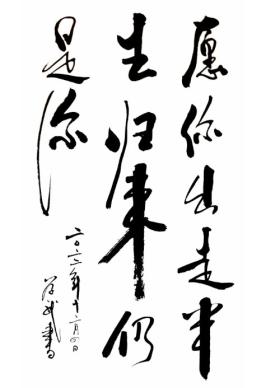 愿你出走半
生归来仍
是你
二〇二三年十二月四日
书